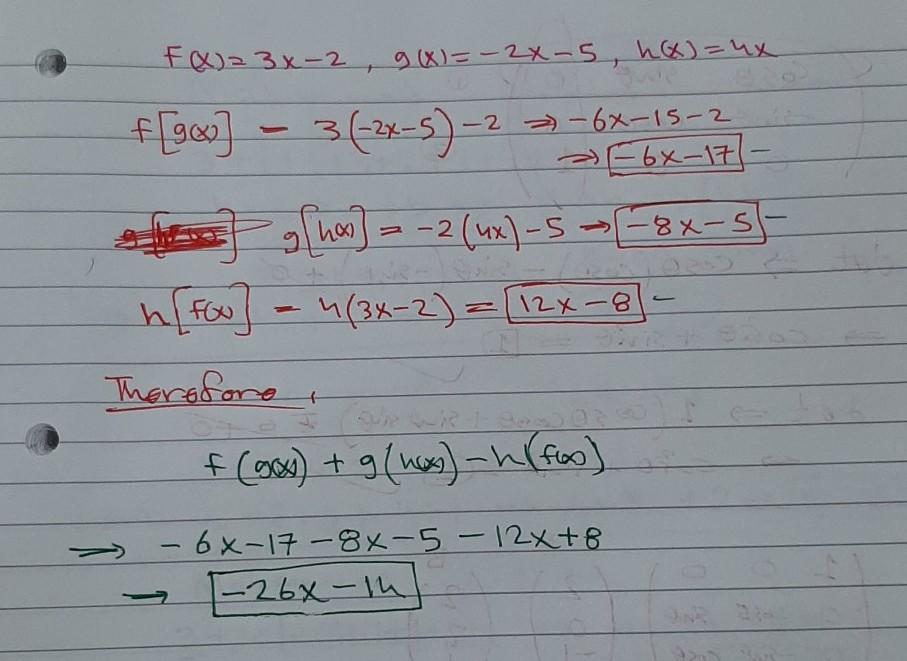 f(x) = 3x-2 , g(x) = -2x-5 , h(x) = 4x
f[g(x)] = 3(-2x-5)-2 ⇒ -6x-15-2
⇒ -6x-17
g[h(x)] = -2(4x)-5 → -8x-5
h[f(x)] = 4(3x-2) = 12x-8
Therefore,
f(g(x)) + g(h(x)) - h(f(x))
→ -6x-17-8x-5-12x+8
→ -26x-14